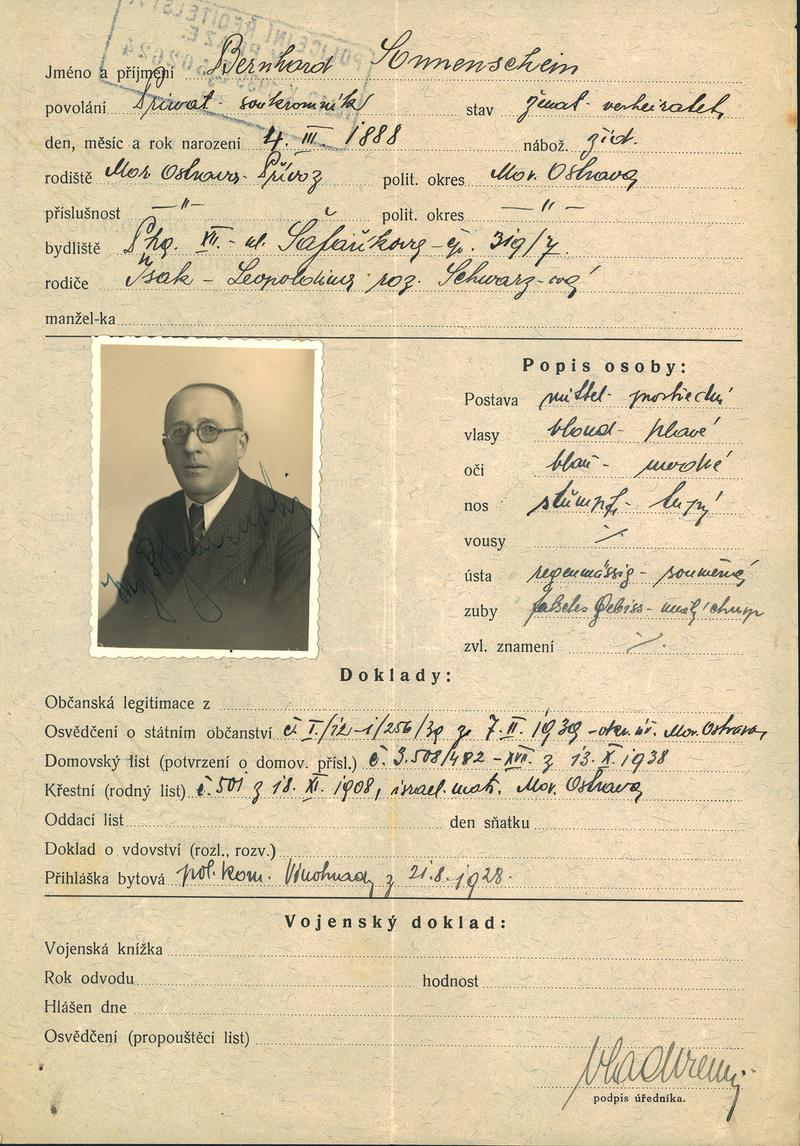 POLICEJNÍ ŘEDITELSTVÍ
Jméno a příjmení Bernhard Sonnenschein
povolání Privat - soukromník stav ženat - verheiratet
den, měsíc a rok narození 4. III. 1888 nábož. žid.
rodiště Mor. Ostrava - Přívoz polit. okres Mor. Ostrava
příslušnost —"— polit. okres —"—
bydliště Prag XII. - ul. Šafaříkova - čp. 319/7.
rodiče Isak - Leopoldina roz. Schwarz-ová
manžel-ka
Popis osoby:
Postava mittel - prostřední
vlasy blond - plavé
oči blau - modré
nos stumpf - tupý
vousy
ústa regenmässig - souměrná
zuby falsches Gebiss - umělý chrup
zvl. znamení
Doklady:
Občanská legitimace z
Osvědčení o státním občanství č I./12-1/256/39 z 7. II. 1939 - okr. úř. Mor. Ostrava
Domovský list (potvrzení o domov. přísl.) č. 3.508/482 - XVII. z 13. X. 1938
Křestní (rodný list) č. 501 z 18. XI. 1908, israel. mat. Mor. Ostrava
Oddací list den sňatku
Doklad o vdovství (rozl., rozv.)
Přihláška bytová pol. kom. Vinohrady z 21.8.1928.
Vojenský doklad:
Vojenská knížka
Rok odvodu hodnost
Hlášen dne
Osvědčení (propouštěcí list)
podpis úředníka.